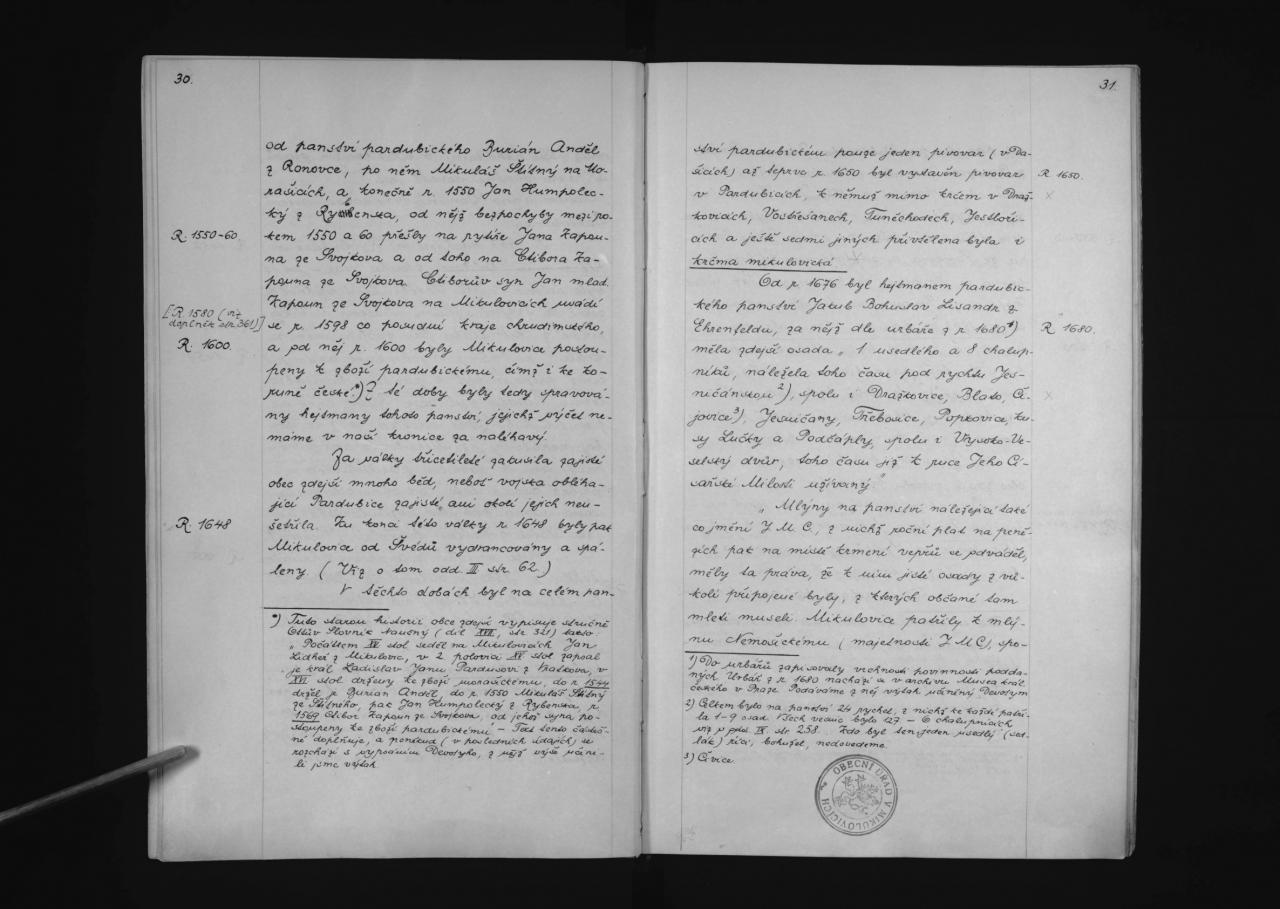 30.
od panství pardubického Burián Anděl
z Ronovce, po něm Mikuláš Štítný na Mo-
rašicích, a konečně r. 1550 Jan Humpolec-
ký z Rybenska, od nějž bezpochyby mezi ro-
R. 1550-60.
kem 1550 a 60 přešly na rytíře Jana Zapou-
na ze Svojkova a od toho na Ctibora Za-
pouna ze Svojkova. Ctiborův syn Jan mlad.
Zapoun ze Svojkova na Mikulovicích uvádí
[R. 1580 (viz
doplněk str. 361)]
se r. 1598 co posudní kraje chrudimského,
R. 1600.
a pod něj r. 1600 byly Mikulovice postou-
peny k zboží pardubickému, čímž i ke ko-
runě české.*) Z té doby byly tedy spravová-
ny hejtmany tohoto panství, jejichž výčet ne-
máme v naší kronice za naléhavý.
Za války třicetileté zakusila zajisté
obec zdejší mnoho běd, neboť vojska obléha-
jící Pardubice zajisté, ani okolí jejich neu-
R. 1648
šetřila. Ku konci této války r. 1648 byly pak
Mikulovice od Švédů vydrancovány a spá-
leny (Viz o tom odd. III str. 62.)
V těchto dobách byl na celém pan-
*) Tuto starou historii obce zdejší vypisuje stručně
Ottův Slovník Naučný (díl XVII, str. 321) takto:
„Počátkem XV stol. seděl na Mikulovicích Jan
Lidheř z Mikulovic, v 2. polovici XV stol. zapsal
je král Ladislav Janu Pardusovi z Vratkova, v
XVI stol. drženy ke zboží morašickému, do r. 1544
držel r. Burian Anděl, do r. 1550 Mikuláš Štítný
ze Štítného, pak Jan Humpolecký z Rybenska, r.
1569 Ctibor Zapoun ze Svojkova, od jehož syna po-
stoupeny ke zboží pardubickému." – Tak tento částeč-
ně doplňuje, a poněkud (v posledních údajích) se
rozchází s vypsáním Devotyho, z nějž výše učini-
li jsme výtah.
31.
ství pardubickém pouze jeden pivovar (v Da-
R. 1650.
šicích) až teprve r. 1650 byl vystavěn pivovar
v Pardubicích, k němuž mimo krčem v Draž-
kovicích, Vostřešanech, Tuněchodech, Jestboři-
cích a ještě sedmi jiných přivtělena byla i
krčma mikulovická.
Od r. 1676 byl hejtmanem pardubic-
kého panství Jakub Bohuslav Lisandr z
R. 1680.
Ehrenfeldu, za nějž dle urbáře z r. 1680 1)
měla zdejší osada „1 usedlého a 8 chalup-
níků, náležela toho času pod rychtu Jes-
ničánskou 2), spolu i Dražkovice, Blato, Či-
jovice 3), Jesničany, Třebosice, Popkovice, ku-
sy Lučky a Podčáply, spolu i Vysoko-Ve-
selský dvůr, toho času již k ruce Jeho Cí-
sařské Milosti užívaný."
„Mlýny na panství náležející také
co jmění J. M. C., z nichž roční plat na peně-
zích pak na místě krmení vepřů se odváděl,
měly ta práva, že k nim jisté osady z vů-
kolí připojené byly, z kterých občané tam
mleti museli. Mikulovice patřily k mlý-
nu Nemošickému (majetnosti J. M. C), spo-
1) Do urbářů zapisovaly vrchnosti povinnosti podda-
ných. Urbář z r. 1680 nachází se v archivu Musea král.
českého v Praze. Podáváme z něj výtah učiněný Devotym.
2) Celkem bylo na panství 24 rychet, z nichž ke každé patři-
la 1-9 osad. Všech vesnic bylo 127. – O chalupnících
viz v odd. IX str. 258. Kdo byl ten jeden usedlý (sed-
lák) říci, bohužel, nedovedeme.
3) Čivice.
OBECNÍ ÚŘAD V MIKULOVICÍCH